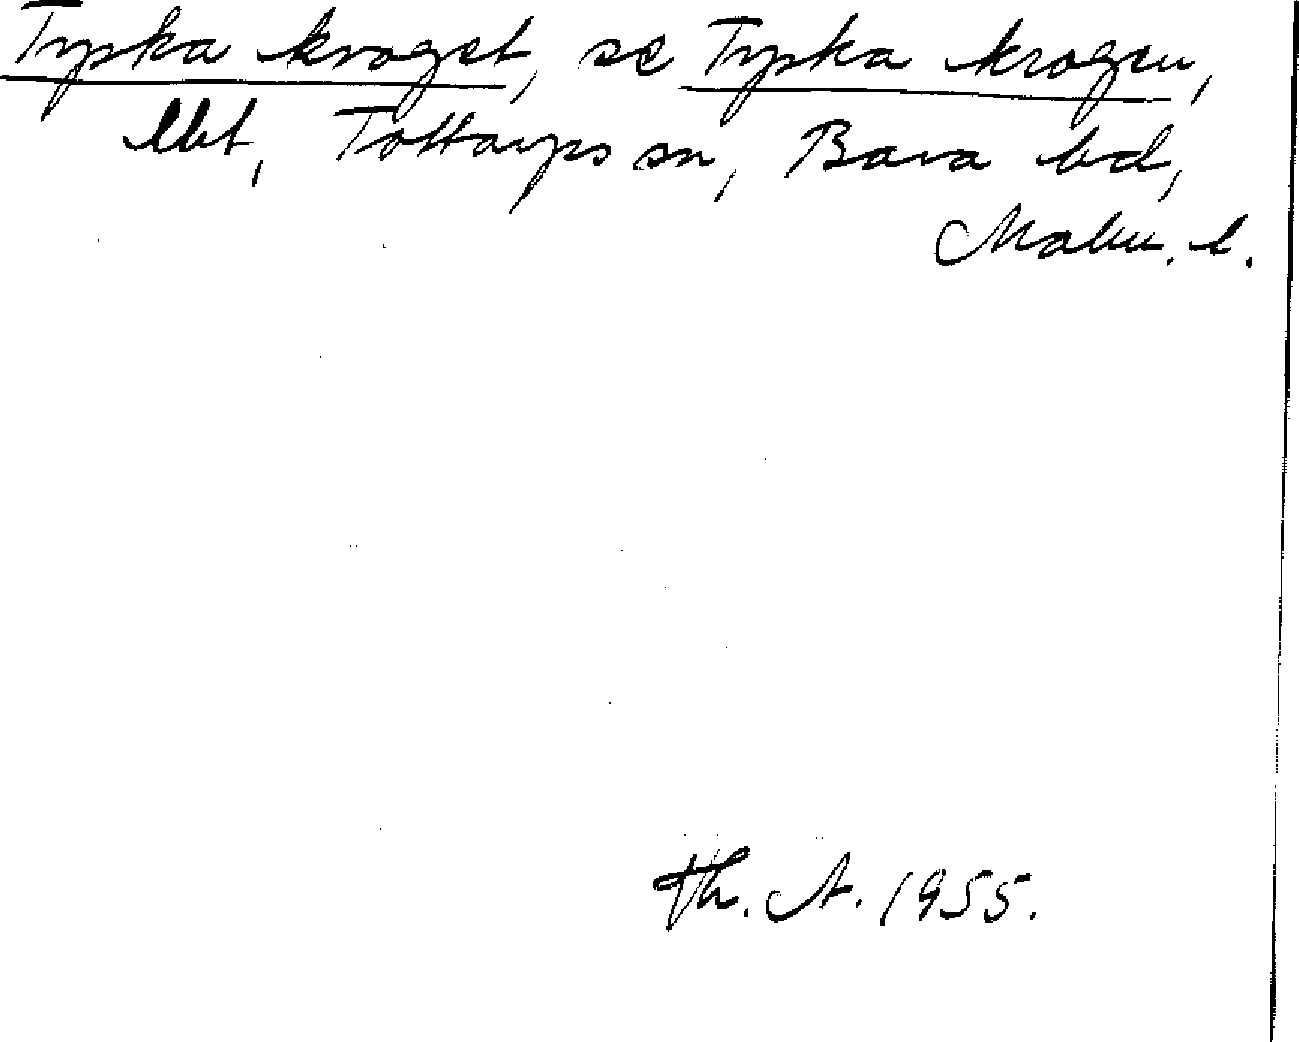 Tyska kroget, se Tyska krogen,
lbt, Tottarps sn, Bara hd,
Malm. l.
Th. A. 1955.